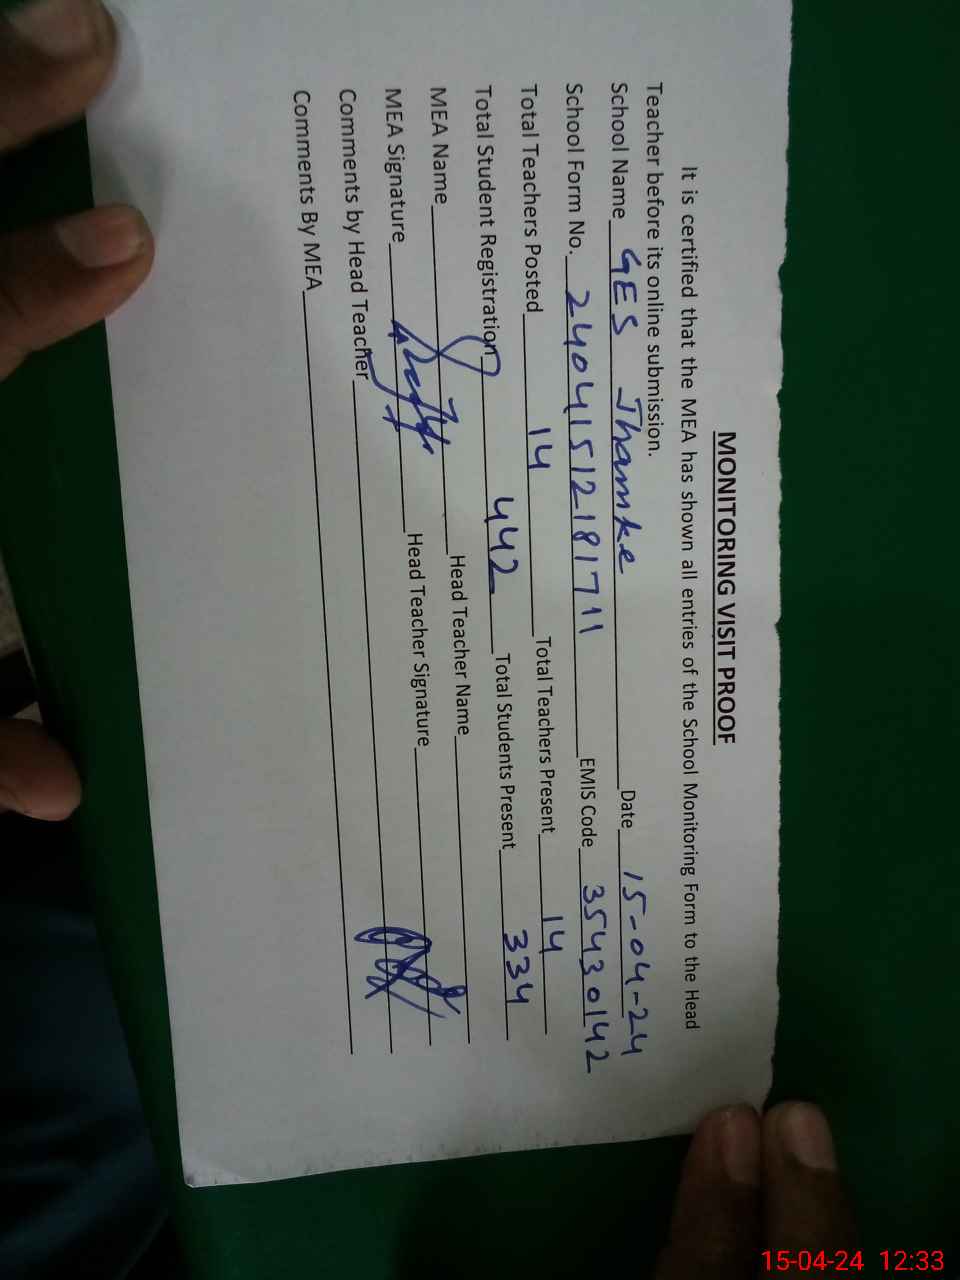 MONITORING VISIT PROOF
It is certified that the MEA has shown all entries of the School Monitoring Form to the Head
Teacher before its online submission.
School Name GES Jhamke Date 15-04-24
School Form No. 2404151218171 1 EMIS Code 35430142
Total Teachers Posted 14 Total Teachers Present 14
Total Student Registration 442 Total Students Present 334
MEA Name Head Teacher Name
MEA Signature Head Teacher Signature
Comments by Head Teacher
Comments By MEA
15-04-24 12:33